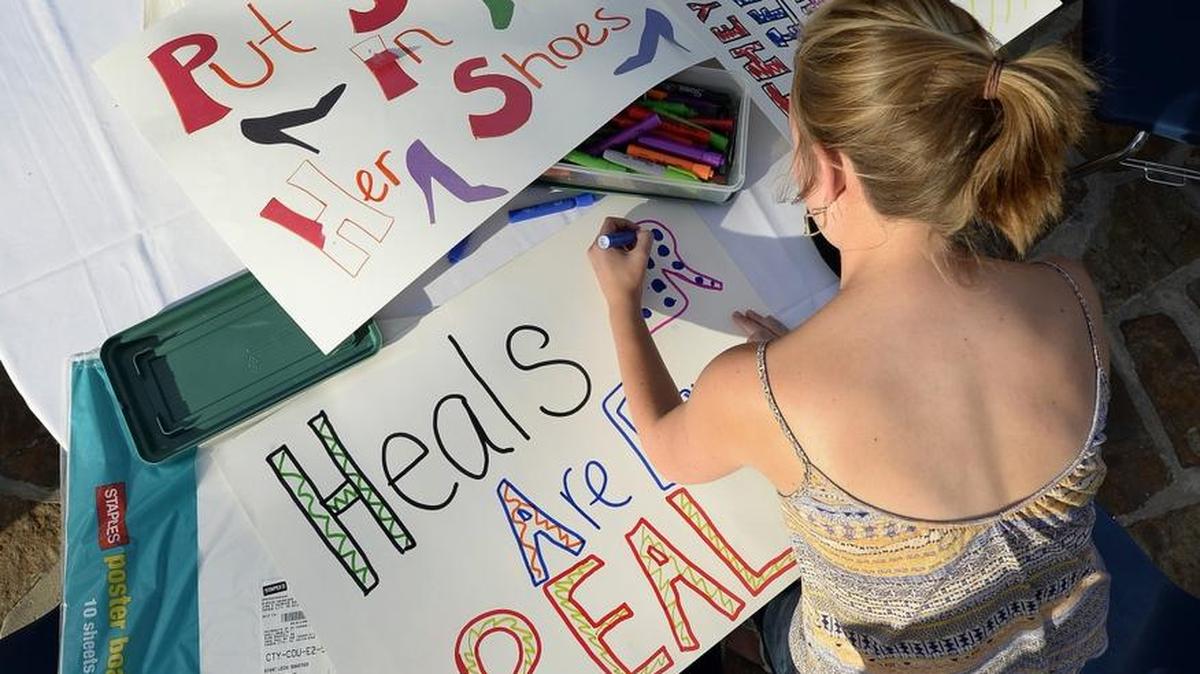 Put
in
Her Shoes
THEY
Heals
Are
REAL
STAPLES
poster bo
10 sheets
STAPLES
CTY-CDU-EZ-